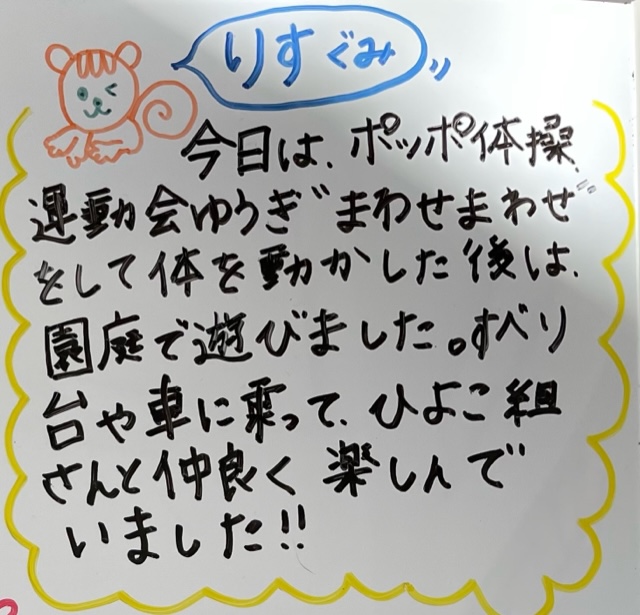 りすぐみ
今日は、ポッポ体操、
運動会ゆうぎ"まわせまわせ"
をして体を動かした後は、
園庭で遊びました。すべり
台や車に乗って、ひよこ組
さんと仲良く楽しんで
いました!!